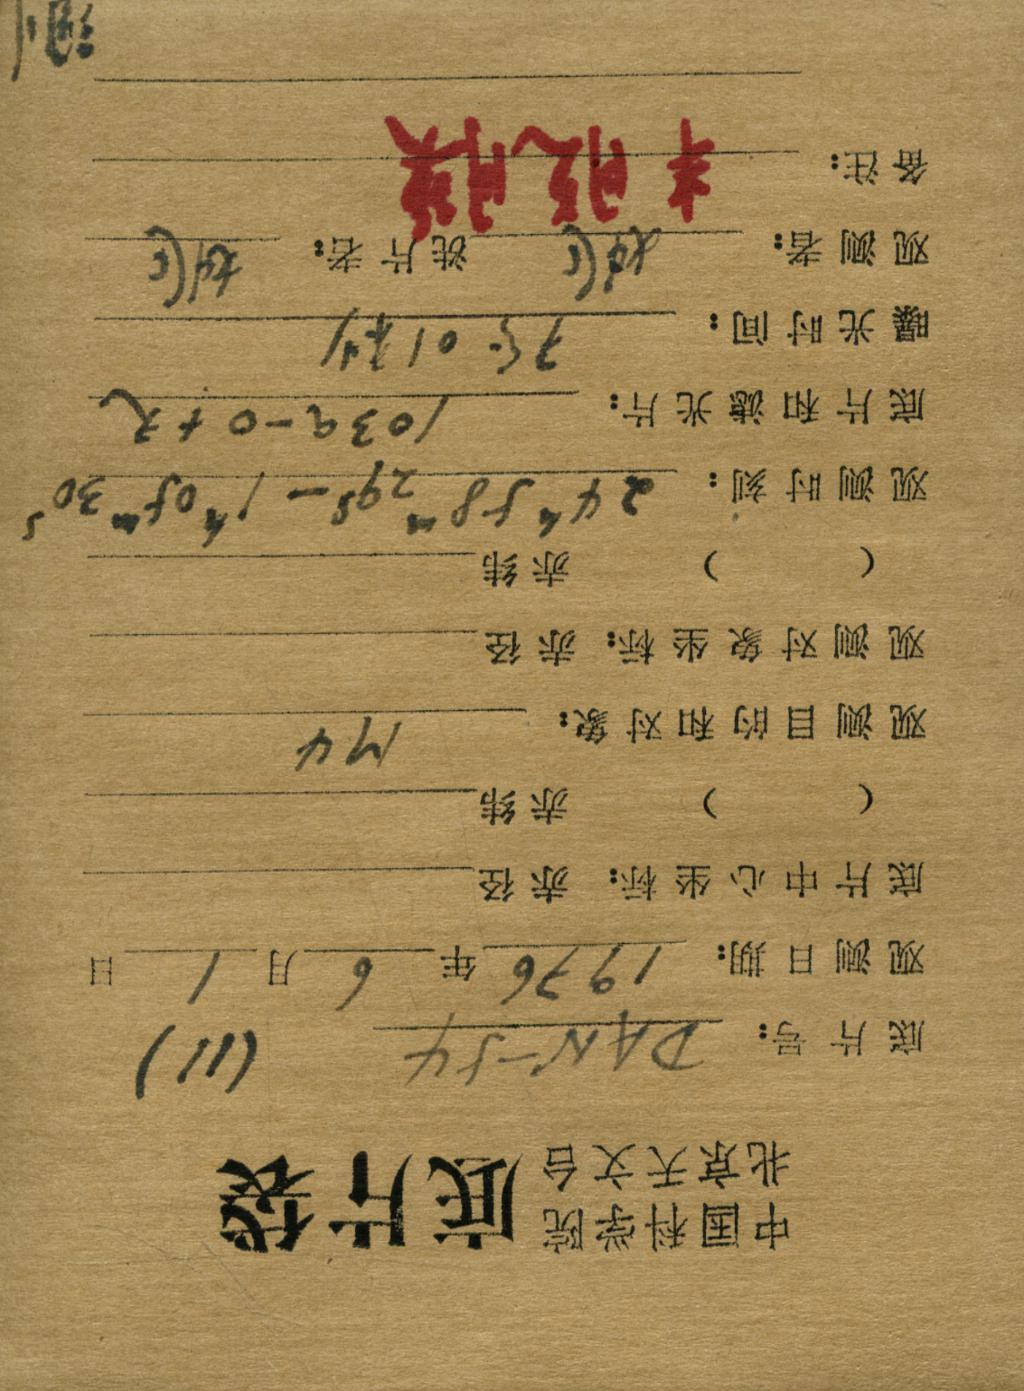 中国科学院
北京天文台
底片袋
底片号: DAN-54 (11)
观测日期: 1976年6月1日
底片中心坐标: 赤径
( ) 赤纬
观测目的和对象: M4
观测对象坐标: 赤径
( ) 赤纬
观测时刻: 24h58m29s-1h05m30s
底片和滤光片: 103a-O+无
曝光时间: 7分01秒
观测者: 洗片者:
备注: